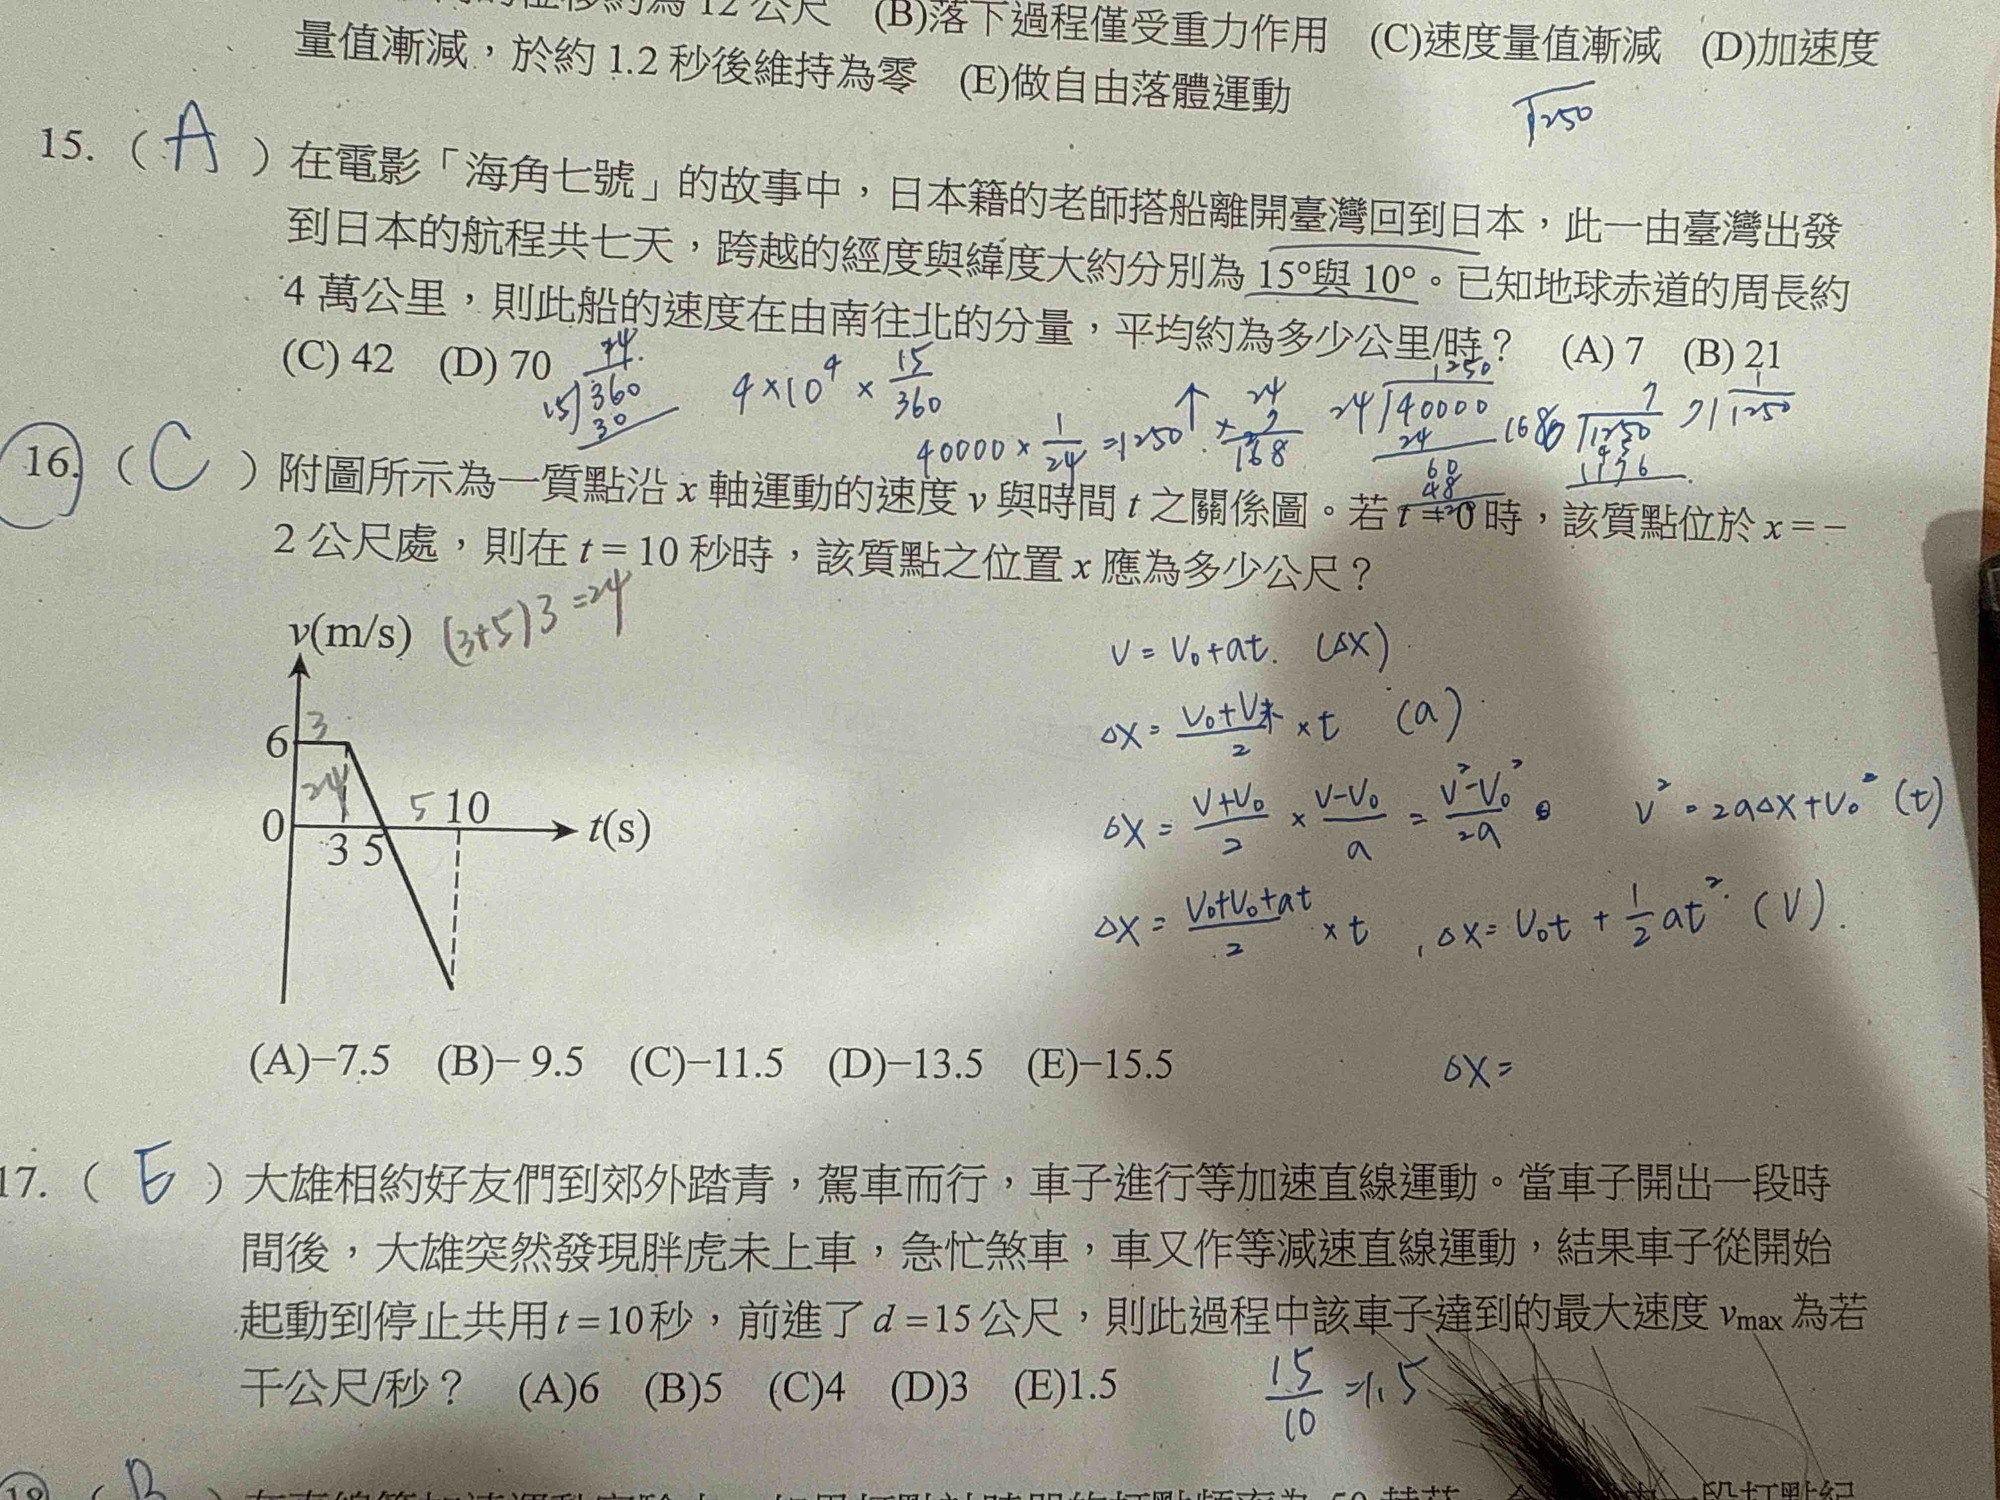 12 公尺 (B)落下過程僅受重力作用 (C)速度量值漸減 (D)加速度
量值漸減，於約 1.2 秒後維持為零 (E)做自由落體運動
1250
15. ( A ) 在電影「海角七號」的故事中，日本籍的老師搭船離開臺灣回到日本，此一由臺灣出發
到日本的航程共七天，跨越的經度與緯度大約分別為 15°與 10°。已知地球赤道的周長約
4 萬公里，則此船的速度在由南往北的分量，平均約為多少公里/時？ (A) 7 (B) 21
(C) 42 (D) 70
24
15)360
30
4×10⁴ × 15/360
40000 × 1/24 = 1250 ↑
24
× 7
168
1250
24)40000
24
60
48
7
168)1250
1176
1
71)1250
16. ( C ) 附圖所示為一質點沿 x 軸運動的速度 v 與時間 t 之關係圖。若 t = 0 時，該質點位於 x = −
2 公尺處，則在 t = 10 秒時，該質點之位置 x 應為多少公尺？
v(m/s) (3+5)3=24
6 3
24 5 10
0 t(s)
3 5
V = V₀+at. (ΔX)
ΔX = (V₀+V末)/2 × t (a)
ΔX = (V+V₀)/2 × (V−V₀)/a = (V²−V₀²)/2a V² = 2aΔX+V₀² (t)
ΔX = (V₀+V₀+at)/2 × t , ΔX = V₀t + 1/2 at² (V).
(A)−7.5 (B)− 9.5 (C)−11.5 (D)−13.5 (E)−15.5
ΔX =
17. ( E ) 大雄相約好友們到郊外踏青，駕車而行，車子進行等加速直線運動。當車子開出一段時
間後，大雄突然發現胖虎未上車，急忙煞車，車又作等減速直線運動，結果車子從開始
起動到停止共用 t = 10 秒，前進了 d = 15 公尺，則此過程中該車子達到的最大速度 vmax 為若
干公尺/秒？ (A)6 (B)5 (C)4 (D)3 (E)1.5
15/10 = 1.5
18 ( B )